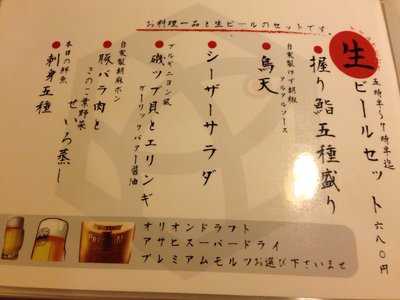 お料理一品と生ビールのセットです。
生ビールセット 六八〇円
五時半～七時半迄
握り鮨五種盛り
自家製ゆず胡椒タルタルソース
鳥天
シーザーサラダ
ブルギニョン風
磯ツブ貝とエリンギ
ガーリックバター醤油
自家製胡麻ポン
豚バラ肉と
きのこ葉野菜
せいろ蒸し
本日の鮮魚
刺身五種
オリオンドラフト
アサヒスーパードライ
プレミアムモルツお選び下さいませ